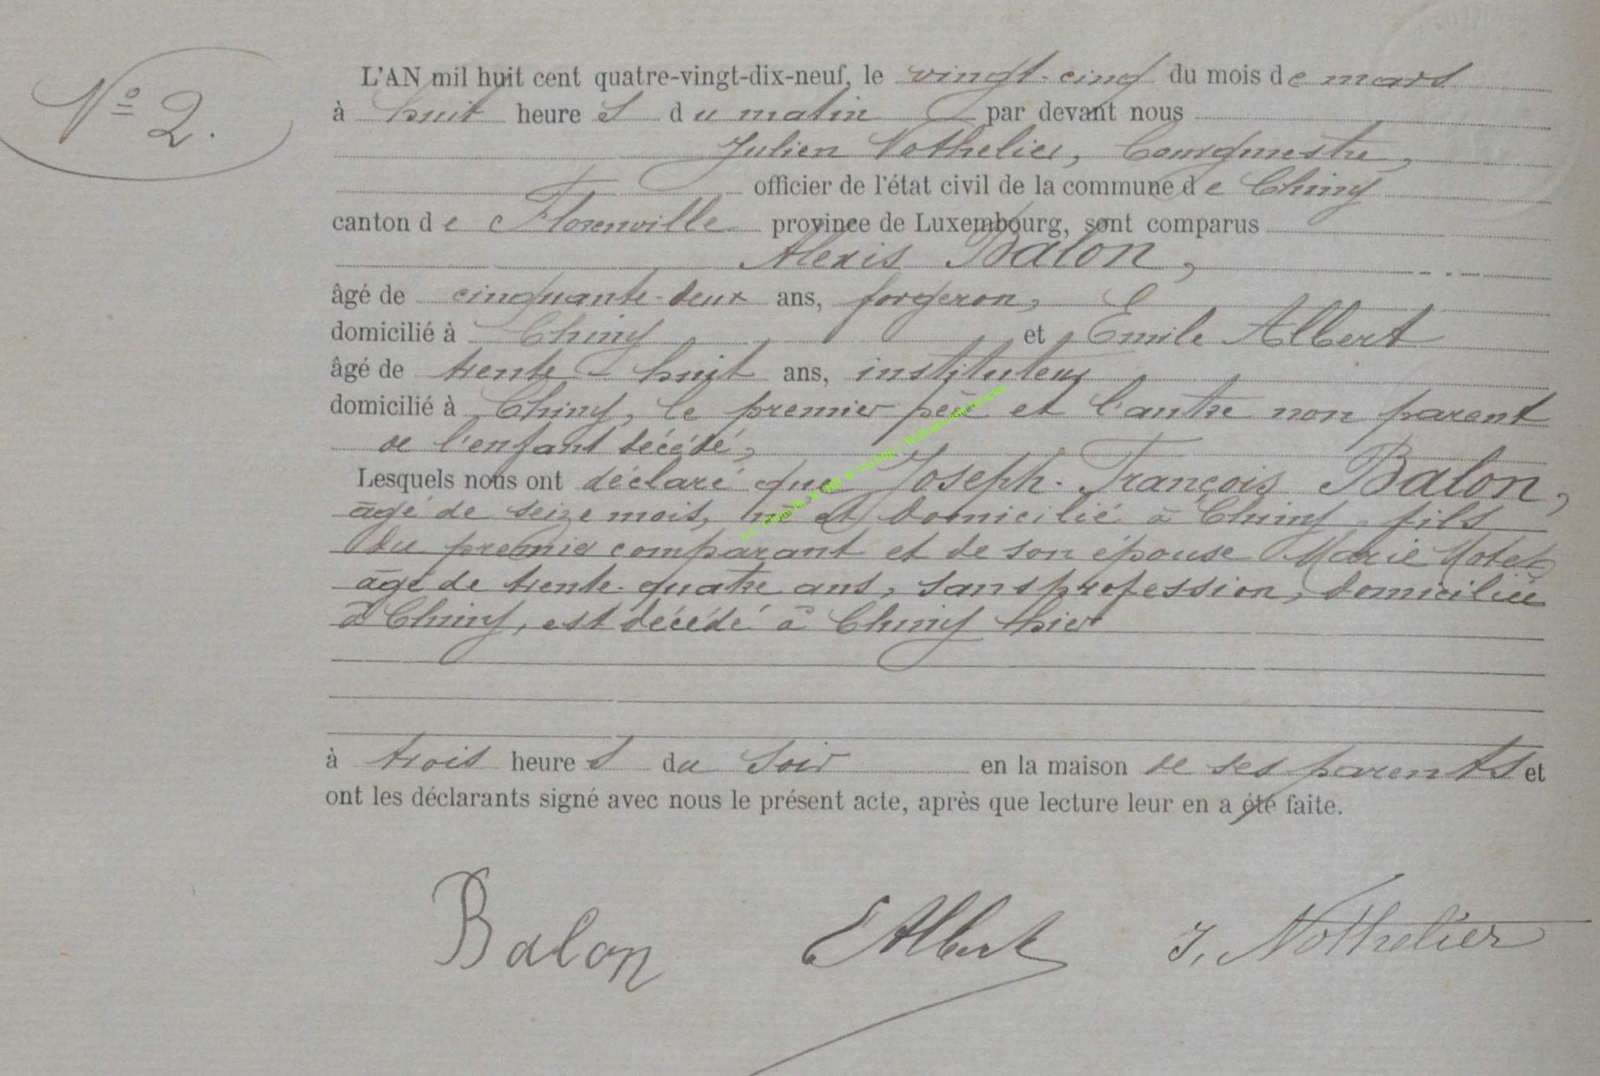 N° 2.
L'AN mil huit cent quatre-vingt-dix-neuf, le vingt-cinq du mois de mars
à huit heures du matin par devant nous
Julien Nothelier, Bourgmestre,
officier de l'état civil de la commune de Chiny
canton de Florenville province de Luxembourg, sont comparus
Alexis Balon,
âgé de cinquante-deux ans, forgeron,
domicilié à Chiny et Emile Albert
âgé de trente-huit ans, instituteur
domicilié à Chiny, le premier père et l'autre non parent
de l'enfant décédé,
Lesquels nous ont déclaré que Joseph-François Balon,
âgé de seize mois, né et domicilié à Chiny, fils
du premier comparant et de son épouse Marie
âgé de trente-quatre ans, sans profession, domiciliée
à Chiny, est décédé à Chiny hier
à trois heures du soir en la maison de ses parents et
ont les déclarants signé avec nous le présent acte, après que lecture leur en a été faite.
Balon EAlbert J. Nothelier